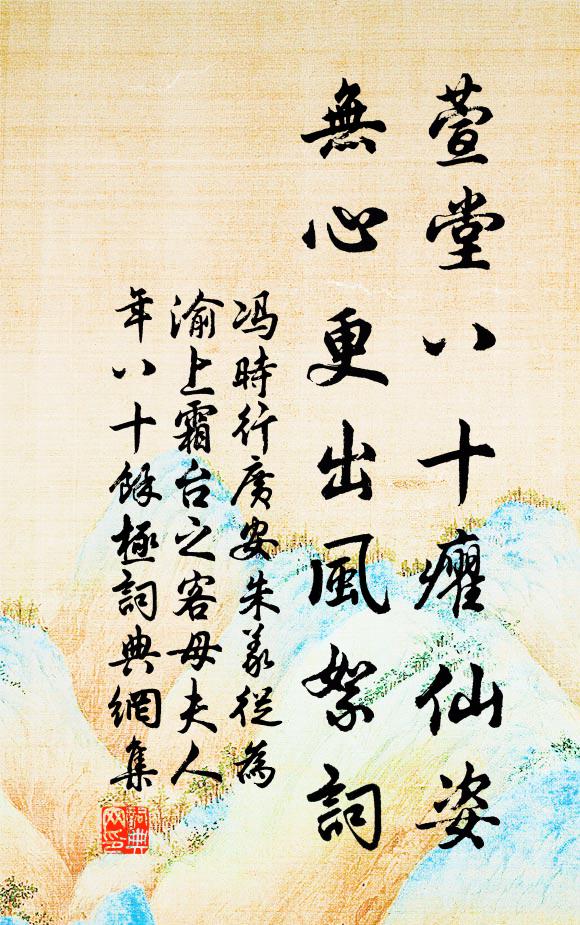 萱堂八十癯仙姿
無心更出風絮詞
冯時行廣安朱義從為
渝上霜台之客母夫人
年八十餘極詞典網集
詞典網印